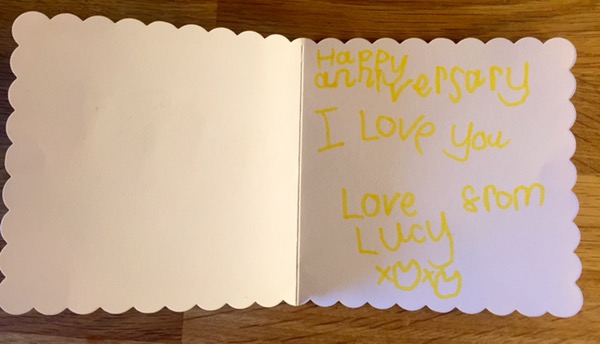 Happy
anniversary
I Love you
Love from
Lucy
xyxy